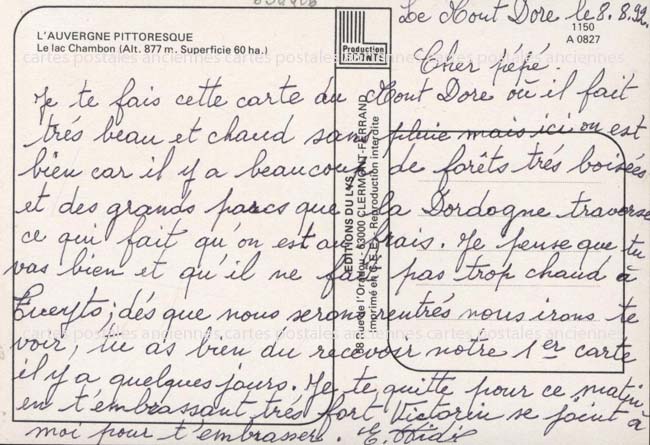 L'AUVERGNE PITTORESQUE
Le lac Chambon (Alt. 877 m. Superficie 60 ha.)
Production
LECONTE
1150
A 0827
EDITIONS DU LYS
68 Rue de l'Oradou - 63000 CLERMONT-FERRAND
Imprimé en C.E.E. Reproduction interdite
cartes postales anciennes cartes postales anciennes
Le Mont Dore le 8.8.92.
Cher pépé.
Je te fais cette carte du Mont Dore où il fait
très beau et chaud sans pluie mais ici on est
bien car il y a beaucoup de forêts très boisées
et des grands parcs que la Dordogne traverse
ce qui fait qu'on est au frais. Je pense que tu
vas bien et qu'il ne fait pas trop chaud à
dès que nous serons rentrés nous irons te
cartes postales anciennes cartes postales anciennes
voir, tu as bien du recevoir notre 1er carte
il y a quelques jours. Je te quitte pour ce matin
en t'embrassant très fort Victorin se joint à
moi pour t'embrasser.